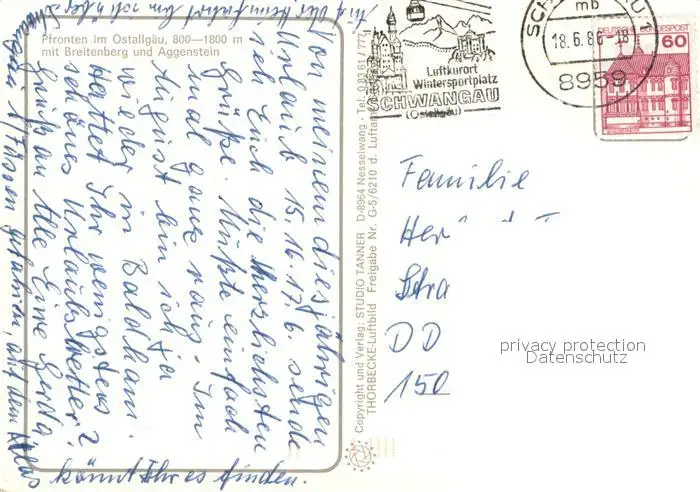 Pfronten im Ostallgäu, 800—1800 m
mit Breitenberg und Aggenstein
Von meinem diesjährigen
Urlaub 15. 16. 17. 6. sende
ich Euch die herzlichsten
Grüße. Mußte einfach
mal ganz raus. Im
August bin ich ja
wieder in Baldham.
Hattet Ihr wenigstens
schönes Urlaubswetter?
Gruß an Alle Eure Gerda
bei Füssen gefahren, auf dem Atlas
könnt Ihr es finden.
Copyright und Verlag: STUDIO TANNER D-8964 Nesselwang · Tel. 0 83 61 / 777
THORBECKE-Luftbild Freigabe Nr. G-5/6210 d. Luftamt
Luftkurort
Wintersportplatz
SCHWANGAU
(Ostallgäu)
SCHWANGAU 1
mb
18.6.86-18
8959
DEUTSCHE BUNDESPOST
60
Familie
Her
Stra
DD
150
privacy protection
Datenschutz